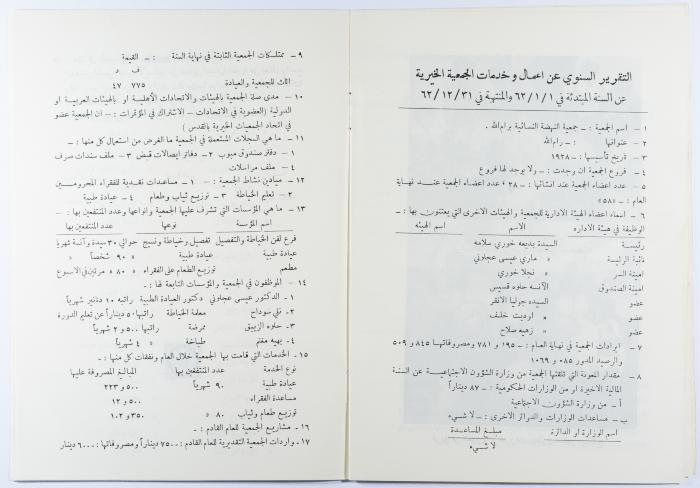 التقرير السنوي عن اعمال وخدمات الجمعية الخيرية
عن السنة المبتدئة في ٦٢/١/١ والمنتهية في ٦٢/١٢/٣١
١ – اسم الجمعية : – جمعية النهضة النسائية برام الله .
٢ – عنوانها : – رام الله
٣ – تاريخ تأسيسها : – ١٩٢٨
٤ – فروع الجمعية ان وجدت : – ولا يوجد لها فروع
٥ – عدد اعضاء الجمعية عند انشائها : – ٢٨ عدد اعضاء الجمعية عند نهاية
العام : – «٥٨»
٦ – اسماء اعضاء الهيئة الادارية للجمعية والهيئات الاخرى التي يعتنون بها : –
الوظيفة في هيئة الاداره الاسم اسم الهيئه
رئيسة السيدة بديعه خوري سلامه
نائبة الرئيسة » ماري عيسى عجلوني
امينة السر » نجلا خوري
امينة الصندوق الآنسه حلوه قسيس
عضو السيده جوليا الاقفر
عضو » اوديت خلف
عضو » زهيه صلاح
٧ – ايرادات الجمعية في نهاية العام : – ١٩٥ و ٧٨١ ومصروفاتها ٨٤٥ و ٥٠٩
والرصيد المدور ٠٨٥ و ١٠٦٩
٨ – مقدار المعونة التي تلقتها الجمعية من وزارة الشؤون الاجتماعية عن السنة
المالية الاخيرة او من الوزارات الحكومية : – ٨٧ ديناراً
أ – من وزارة الشؤون الاجتماعية
ب – مساعدات الوزارات والدوائر الاخرى : – لا شيء
اسم الوزارة او الدائرة مبلغ المساعدة
لا شيء
٩ – ممتلكات الجمعية الثابتة في نهاية السنة : – القيمة
ف د
اثاث للجمعية والعيادة ٧٧٥ ٤٧
١٠ – مدى صلة الجمعية بالهيئات والاتحادات الأهلية او بالهيئات العربية او
الدولية (العضوية في الاتحادات – الاشتراك في المؤتمرات : – ان الجمعية عضو
في اتحاد الجمعيات الخيرية بالقدس)
١١ – ما هي السجلات المستعملة في الجمعية ما الغرض من استعمال كل منها : –
١ – دفتر صندوق مبوب ٢ – دفاتر ايصالات قبض ٣ – ملف سندات صرف
٤ – ملف مراسلات
١٢ – ميادين نشاط الجمعية : – ١ – مساعدات نقدية للفقراء المحرومين
٢ – تعليم الخياطة ٣ – توزيع ثياب وطعام ٤ – عيادة طبية
١٣ – ما هي المؤسسات التي تشرف عليها الجمعية وانواعها وعدد المنتفعين بها : –
اسم المؤسسة نوعها عدد المنتفعين بها
فرع لفن الخياطة والتفصيل تفصيل وخياطة ونسيج حوالي ٣٠ سيدة وآنسة شهرياً
عيادة طبية عيادة طبية » ٩٠ شخصاً »
مطعم توزيع الطعام على الفقراء » ٨٠ » مرتين في الاسبوع
١٤ – الموظفون في الجمعية والمؤسسات التابعة لها : –
١ – الدكتور عيسى عجلوني دكتور العيادة الطبية راتبه ١٠ دنانير شهرياً
٢ – نلي سوداح معلمة الخياطة راتبها ٥٠ ديناراً عن تعليم الدورة
٣ – حلوه الزيبق ممرضة راتبها ٥٠٠ و ٢ شهرياً
٤ – بهيه مغنم طباخة » ٤ شهرياً
١٥ – الخدمات التي قامت بها الجمعية خلال العام ونفقات كل منها : –
نوع الخدمة عدد المنتفعين بها المبالغ المصروفة عليها
عيادة طبية ٩٠ شهرياً ٥٠٠ و ٢٢٣
مساعدة الفقراء ٥٠٠ و ١٢
توزيع طعام وثياب ٨٠ » ٣٥٠ و ١٠٢
١٦ – مشاريع الجمعية للعام القادم : –
١٧ – واردات الجمعية التقديرية للعام القادم : – ٧٥٠٠ ديناراً ومصروفاتها : – ٦٠٠٠ دينار